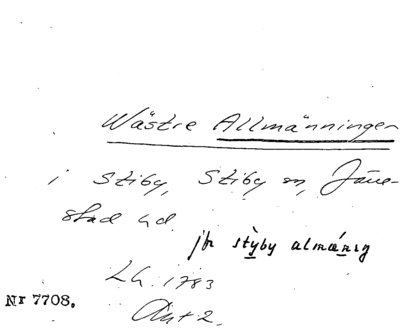 Wästre Allmänningen
i Stiby, Stiby sn, Järre-
stad hd.
jfr stỳby almǽnıŋ
LH. 1783
Akt 2.
Nr 7708.